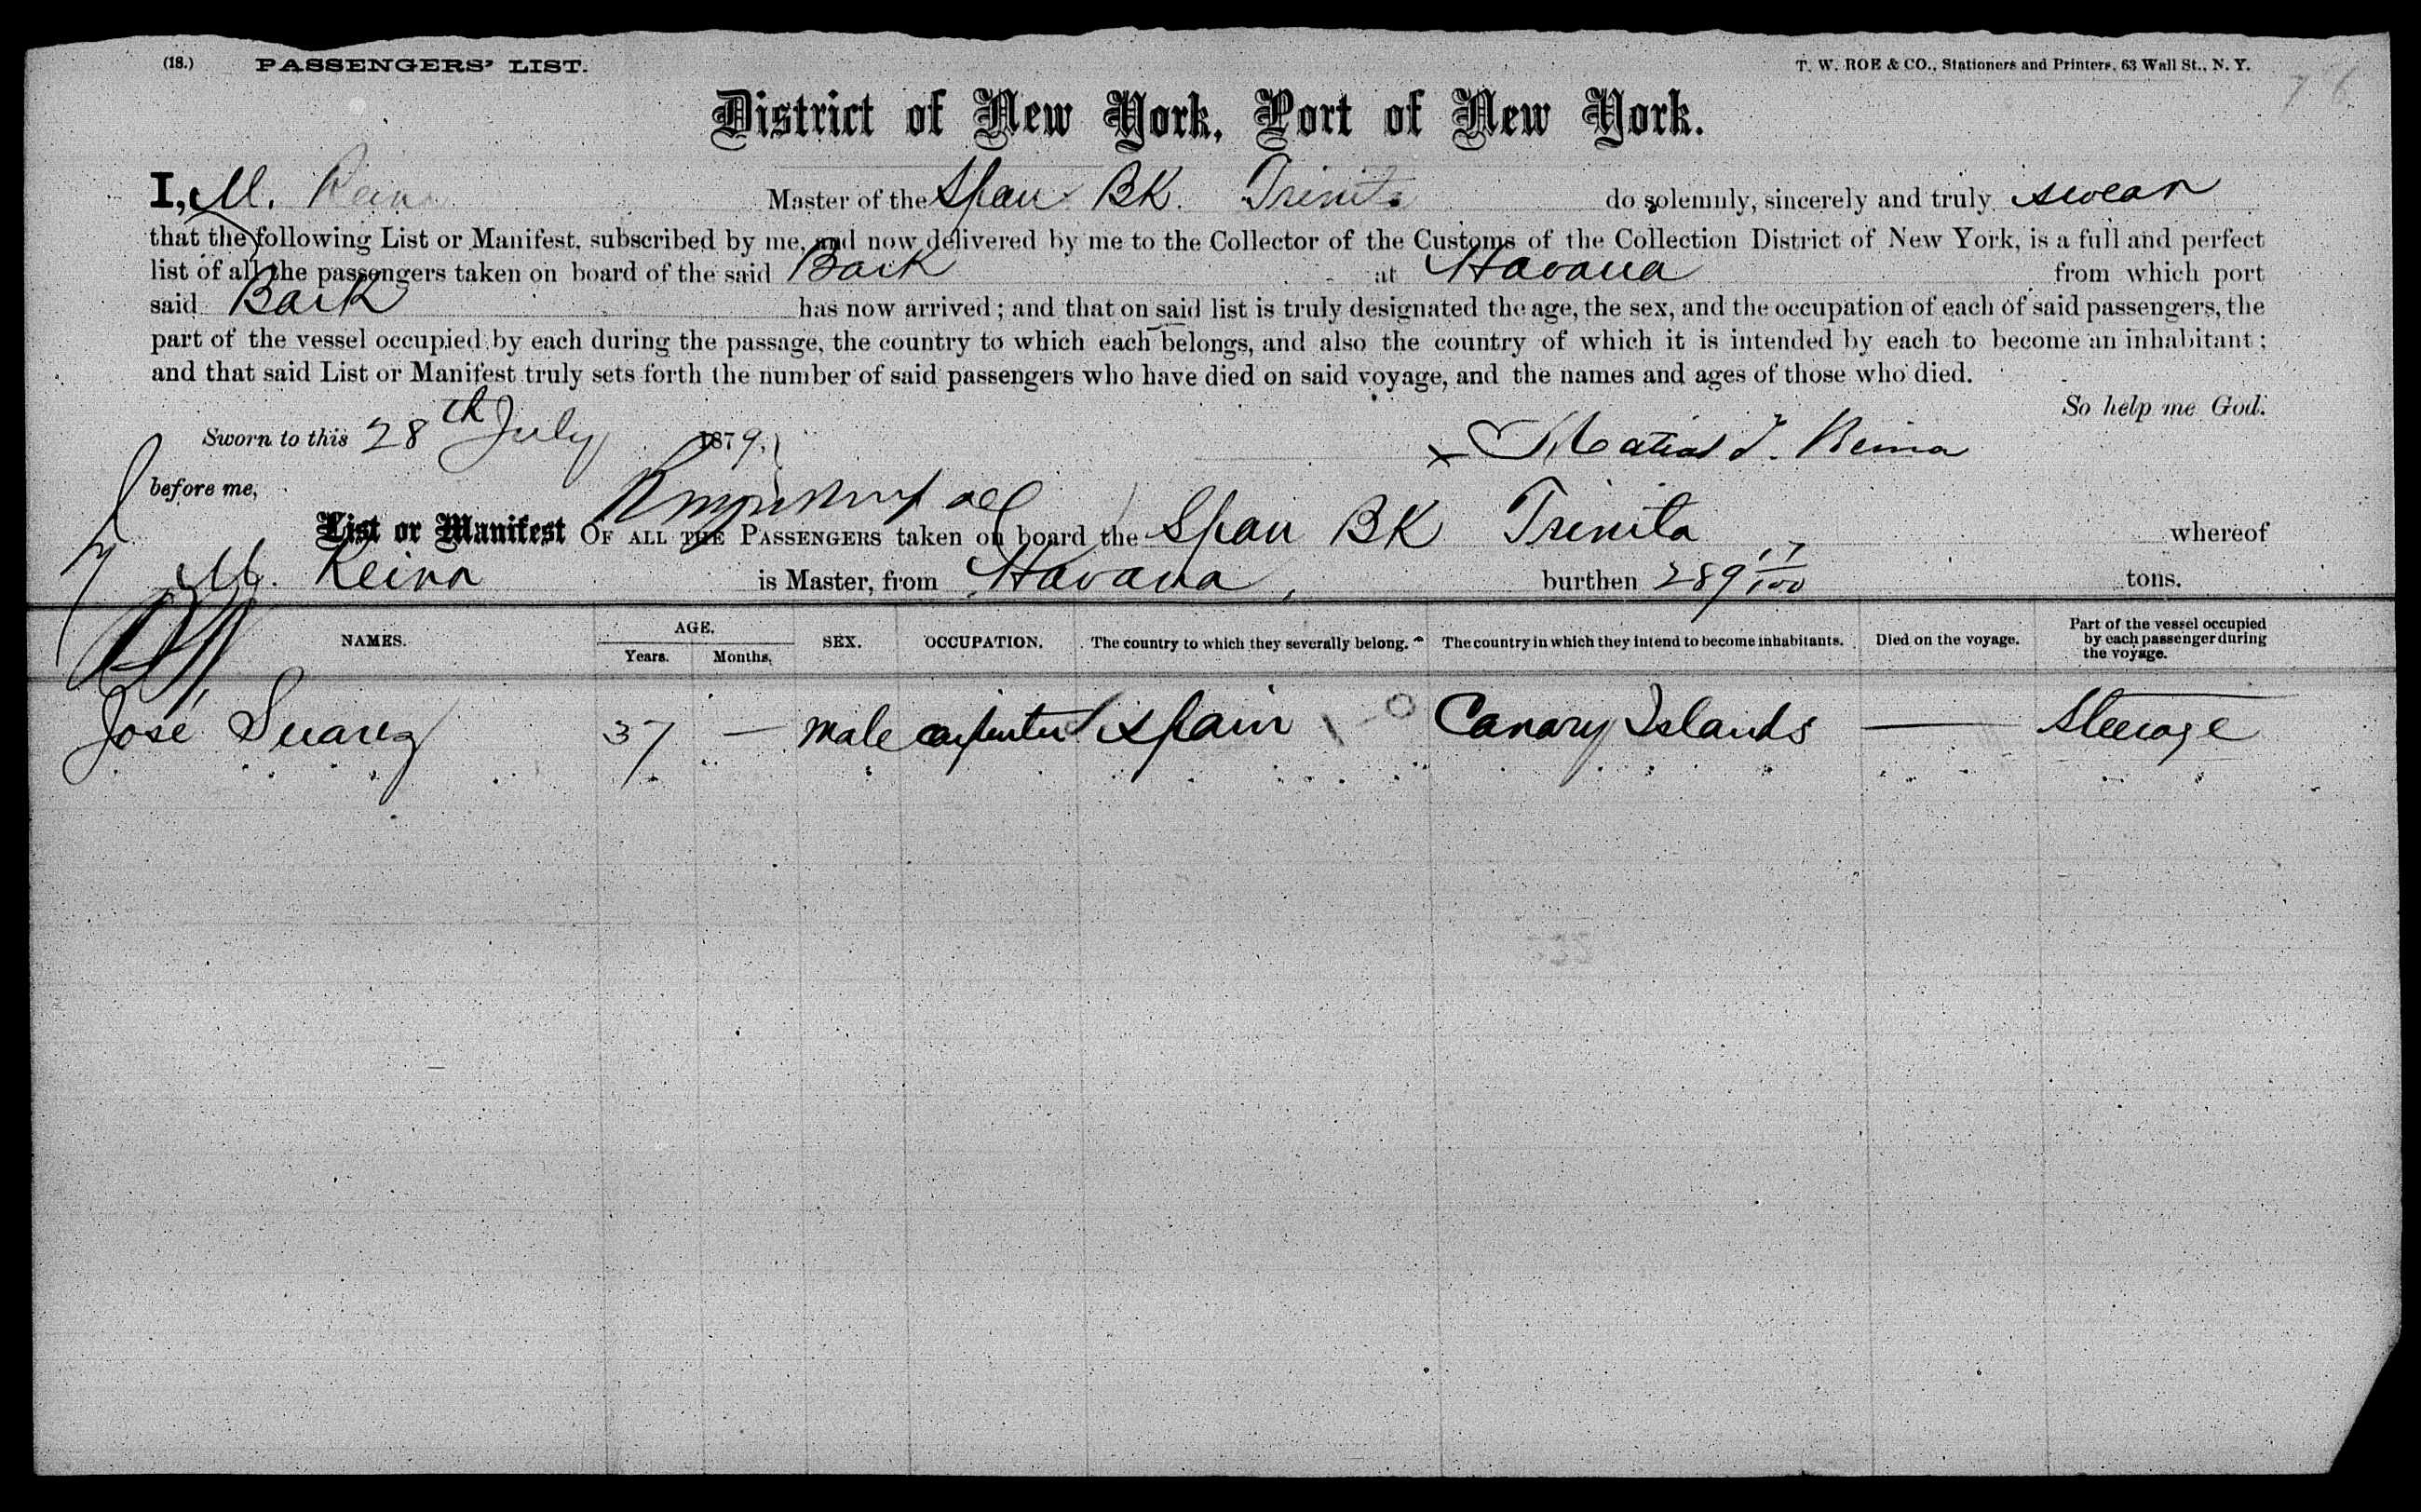 (18.) PASSENGERS' LIST. T. W. ROE & CO., Stationers and Printers, 63 Wall St., N. Y.
76
District of New York, Port of New York.
I, M. Rein Master of the Span BK. Trinita do solemnly, sincerely and truly swear
that the following List or Manifest, subscribed by me, and now delivered by me to the Collector of the Customs of the Collection District of New York, is a full and perfect
list of all the passengers taken on board of the said Bark at Havana from which port
said Bark has now arrived; and that on said list is truly designated the age, the sex, and the occupation of each of said passengers, the
part of the vessel occupied by each during the passage, the country to which each belongs, and also the country of which it is intended by each to become an inhabitant;
and that said List or Manifest truly sets forth the number of said passengers who have died on said voyage, and the names and ages of those who died.
So help me God.
Sworn to this 28th July 1879. x Matias J. Reina
before me,
List or Manifest OF ALL THE PASSENGERS taken on board the Span BK Trinita whereof
M. Reina is Master, from Havana, burthen 289 17/100 tons.
NAMES. AGE. Years. Months. SEX. OCCUPATION. The country to which they severally belong. The country in which they intend to become inhabitants. Died on the voyage. Part of the vessel occupied by each passenger during the voyage.
José Suarez 37 — male carpenter Spain Canary Islands — Steerage